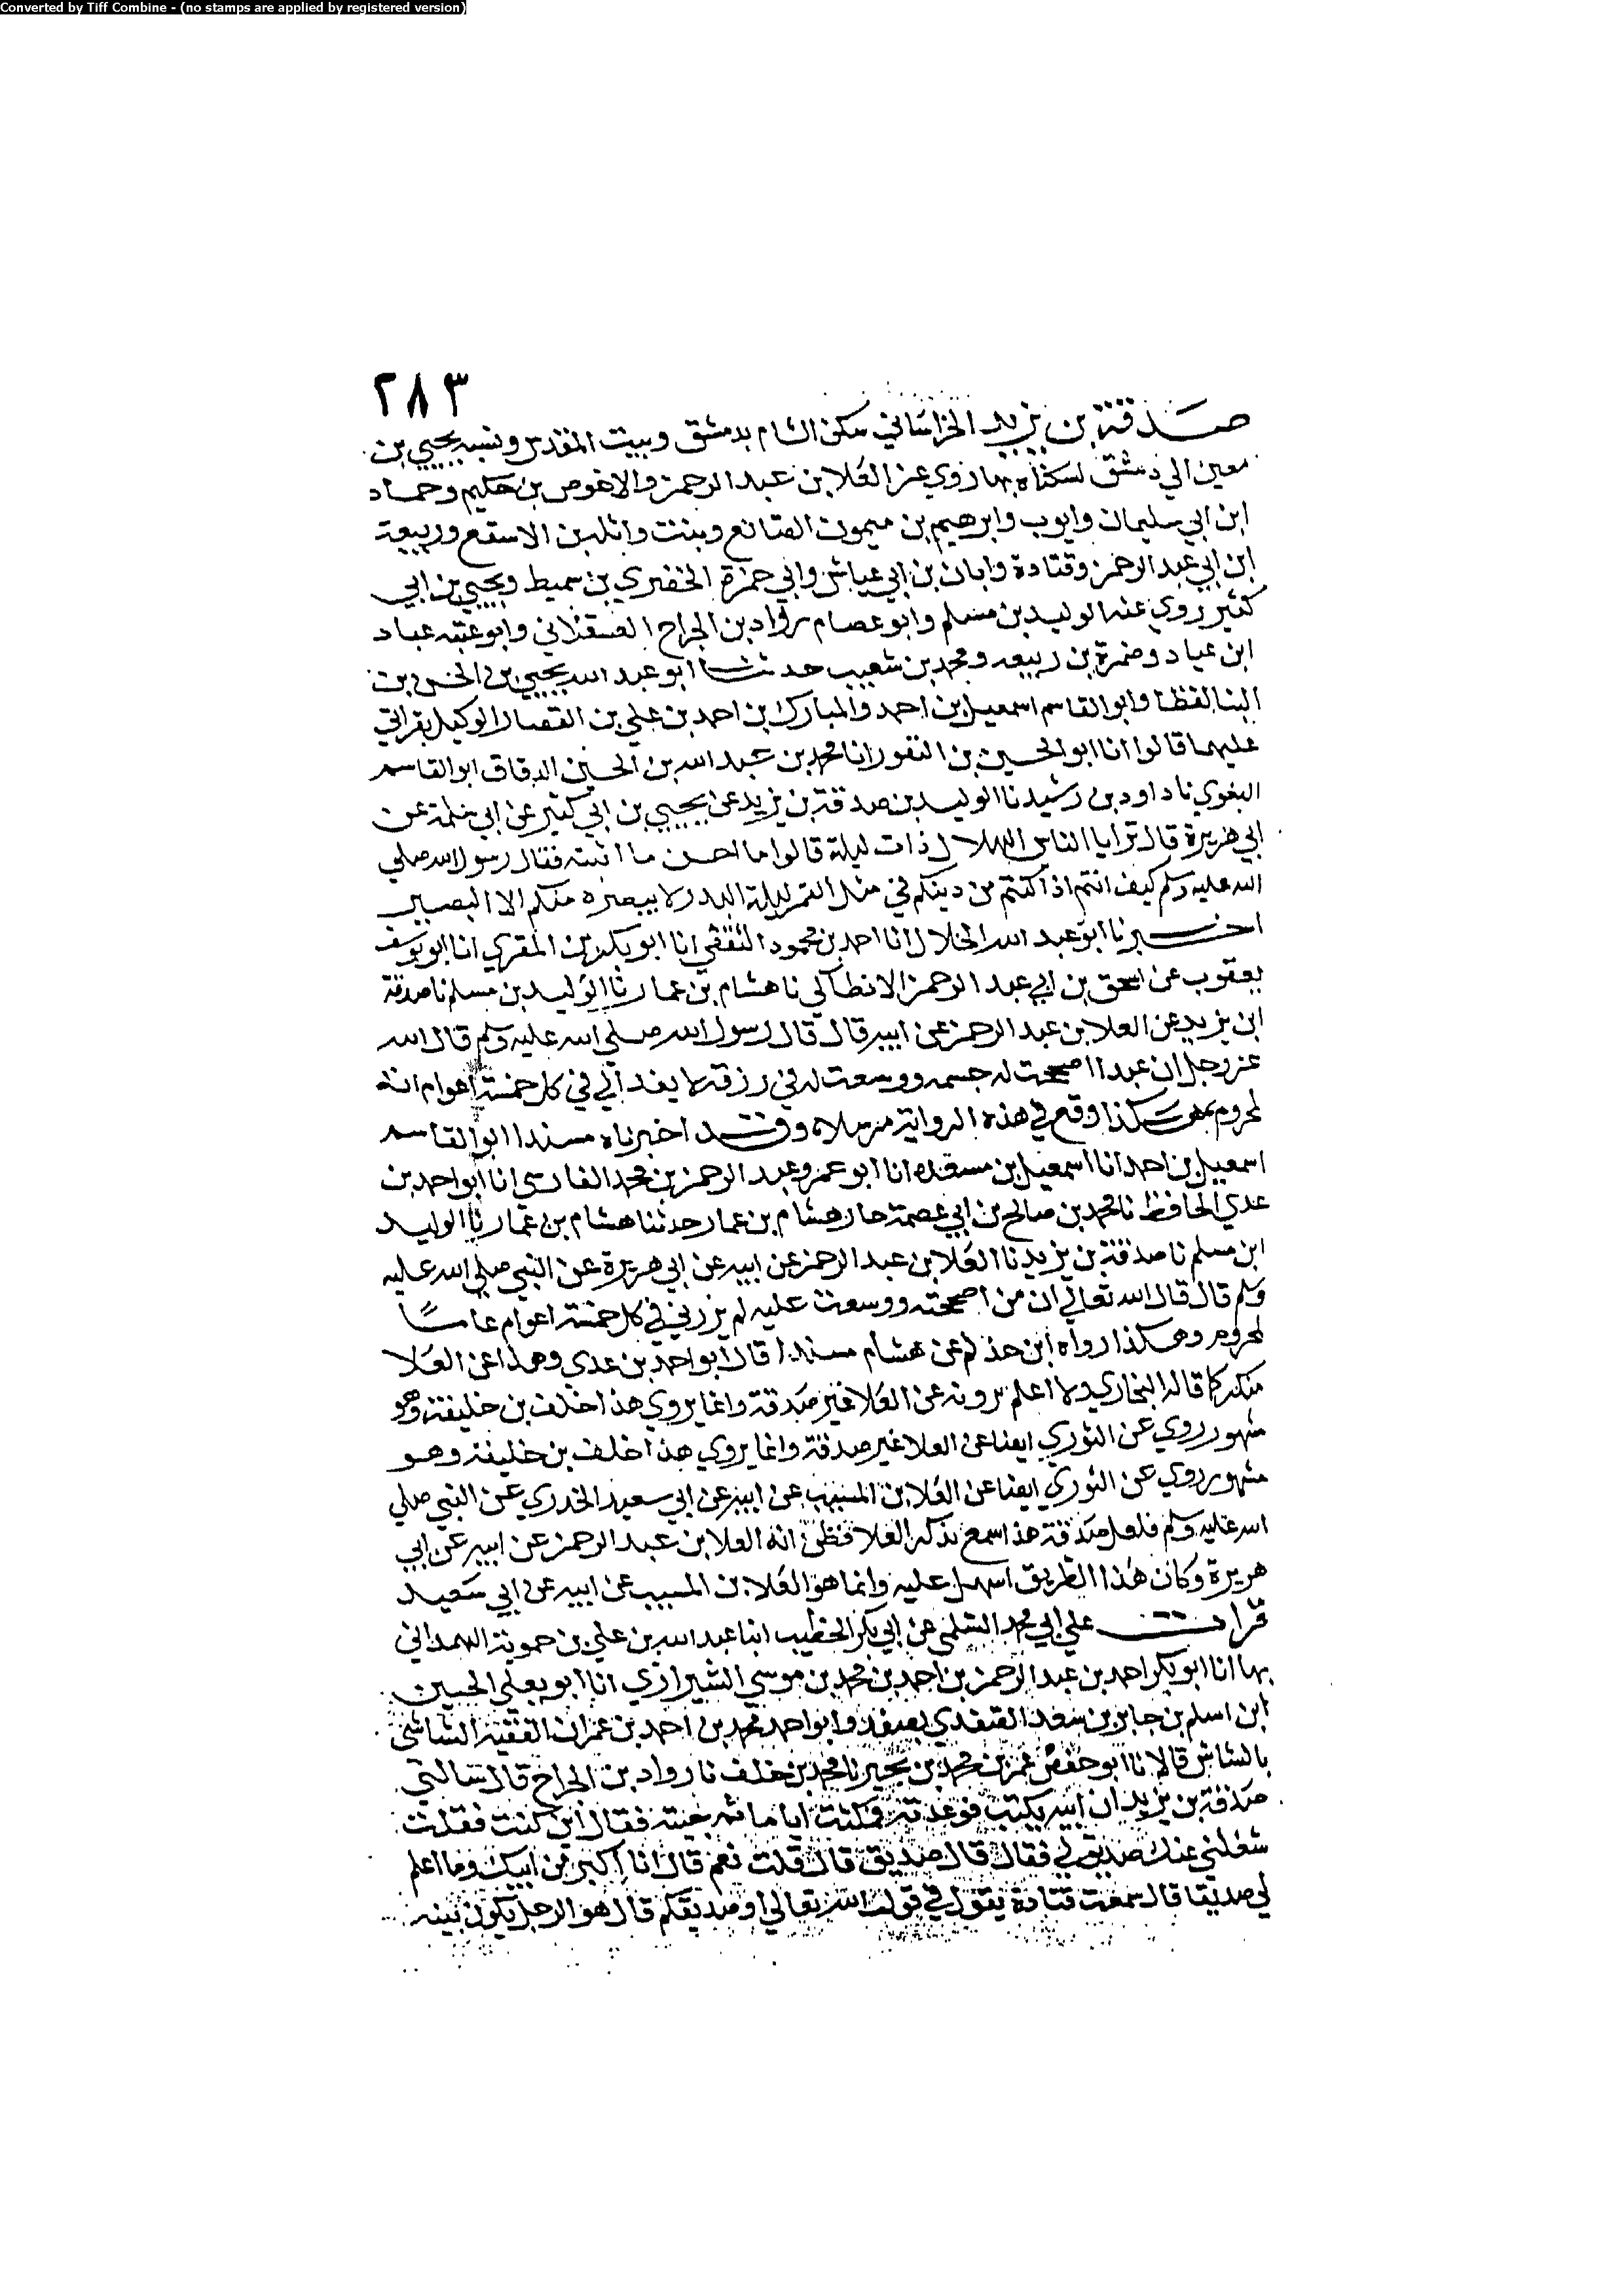 Converted by Tiff Combine - (no stamps are applied by registered version)
٢٨٣
صدقة بن يزيد الخراساني سكن الشام بدمشق وبيت المقدس ونسبه يحيي بن
معين الي دمشق لسكناه بها روي عن العلا بن عبد الرحمن والاحوص بن حكيم وحماد
ابن ابي سليمان وايوب وابرهيم بن ميمون الصانع وبنت واثله بن الاسقع وربيعة
ابن ابي عبد الرحمن وقتادة وابان بن ابي عياش وابي حمزة الخضري بن سميط ويحيي بن ابي
كثير روي عنه الوليد بن مسلم وابو عصام رواد بن الجراح العسقلاني وابو عتبه عباد
ابن عباد وضمرة بن ربيعه ومحمد بن شعيب حدثنا ابو عبد الله يحيي بن الحسن بن
البنا لفظا وابو القاسم اسمعيل بن احمد والمبارك بن احمد بن علي بن القصار الوكيل بقراتي
عليهما قالوا انا ابو الحسين بن النقور انا محمد بن عبد الله بن الحسين الدقاق ابو القاسم
البغوي نا داود بن رشيد نا الوليد بن صدقة بن يزيد عن يحيي بن ابي كثير عن ابي سلمة عن
ابي هريرة قال ترايا الناس الهلال ذات ليلة قالوا ما احسن ما ابينه فقال رسول الله صلي
الله عليه وسلم كيف انتم اذا كنتم من دينكم في مثل القمر ليلة البدر لا يبصره منكم الا البصير
اخبرنا ابو عبد الله الخلال انا احمد بن محمود الثقفي انا ابو بكر بن المقري انا ابو يوسف
يعقوب عن اسحق بن ابي عبد الرحمن الانطاكي نا هشام بن عمار نا الوليد بن مسلم نا صدقة
ابن يزيد عن العلا بن عبد الرحمن عن ابيه قال قال رسول الله صلي الله عليه وسلم قال الله
عز وجل ان عبدا اصححت له جسمه ووسعت له في رزقه لا يفد الي في كل خمسة اعوام انه
لمحروم كذا وقع في هذه الرواية مرسلا وقد اخبرناه مسندا ابو القاسم
اسمعيل بن احمد انا اسمعيل بن مسعده انا ابو عمرو عبد الرحمن بن محمد الفارسي انا ابو احمد بن
عدي الحافظ نا محمد بن صالح بن ابي عصمة جار هشام بن عمار حدثنا هشام بن عمار نا الوليد
ابن مسلم نا صدقة بن يزيد نا العلا بن عبد الرحمن عن ابيه عن ابي هريرة عن النبي صلي الله عليه
وسلم قال قال الله تعالي ان من اصححته ووسعت عليه لم يزرني في كل خمسة اعوام عاما
لمحروم وهكذا رواه ابن حذلم عن هشام مسندا قال ابو احمد بن عدي وهذا عن العلا
منكر كما قاله البخاري ولا اعلم يرويه عن العلا غير صدقة وانما يروي هذا خلف بن خليفة وهو
مشهور روي عن الثوري ايضا عن العلا غير صدقة وانما يروي هذا خلف بن خليفة وهو
مشهور روي عن الثوري ايضا عن العلا بن المسيب عن ابيه عن ابي سعيد الخدري عن النبي صلي
الله عليه وسلم فلعل صدقة هذا سمع بذكر العلا فظن انه العلا بن عبد الرحمن عن ابيه عن ابي
هريرة وكان هذا الطريق اسهل عليه وانما هو العلا بن المسيب عن ابيه عن ابي سعيد
قرات علي ابي محمد السلمي عن ابي بكر الخطيب انبا عبد الله بن علي بن حموية الهمداني
بها انا ابو بكر احمد بن عبد الرحمن بن احمد بن محمد بن موسي الشيرازي انا ابو يعلي الحسين
ابن اسلم بن جابر بن سعد الصغدي بصغد وابو احمد محمد بن احمد بن عمران الفقيه الشاشي
بالشاش قالا نا ابو حفص عمر بن محمد بن بجير نا محمد بن خلف نا رواد بن الجراح قال سالتي
صدقة بن يزيد ان ابيه بكتب فوعدته فمكثت اياما ثم جيته فقال اين كنت فقلت
شغلني عنك صديق لي فقال قال صديق قال قلت نعم قال انا اكبر من ابيك وما اعلم
لي صديقا قال سمعت قتادة يقول في قول الله تعالي او صديقكم قال هو الرجل يكون بينه